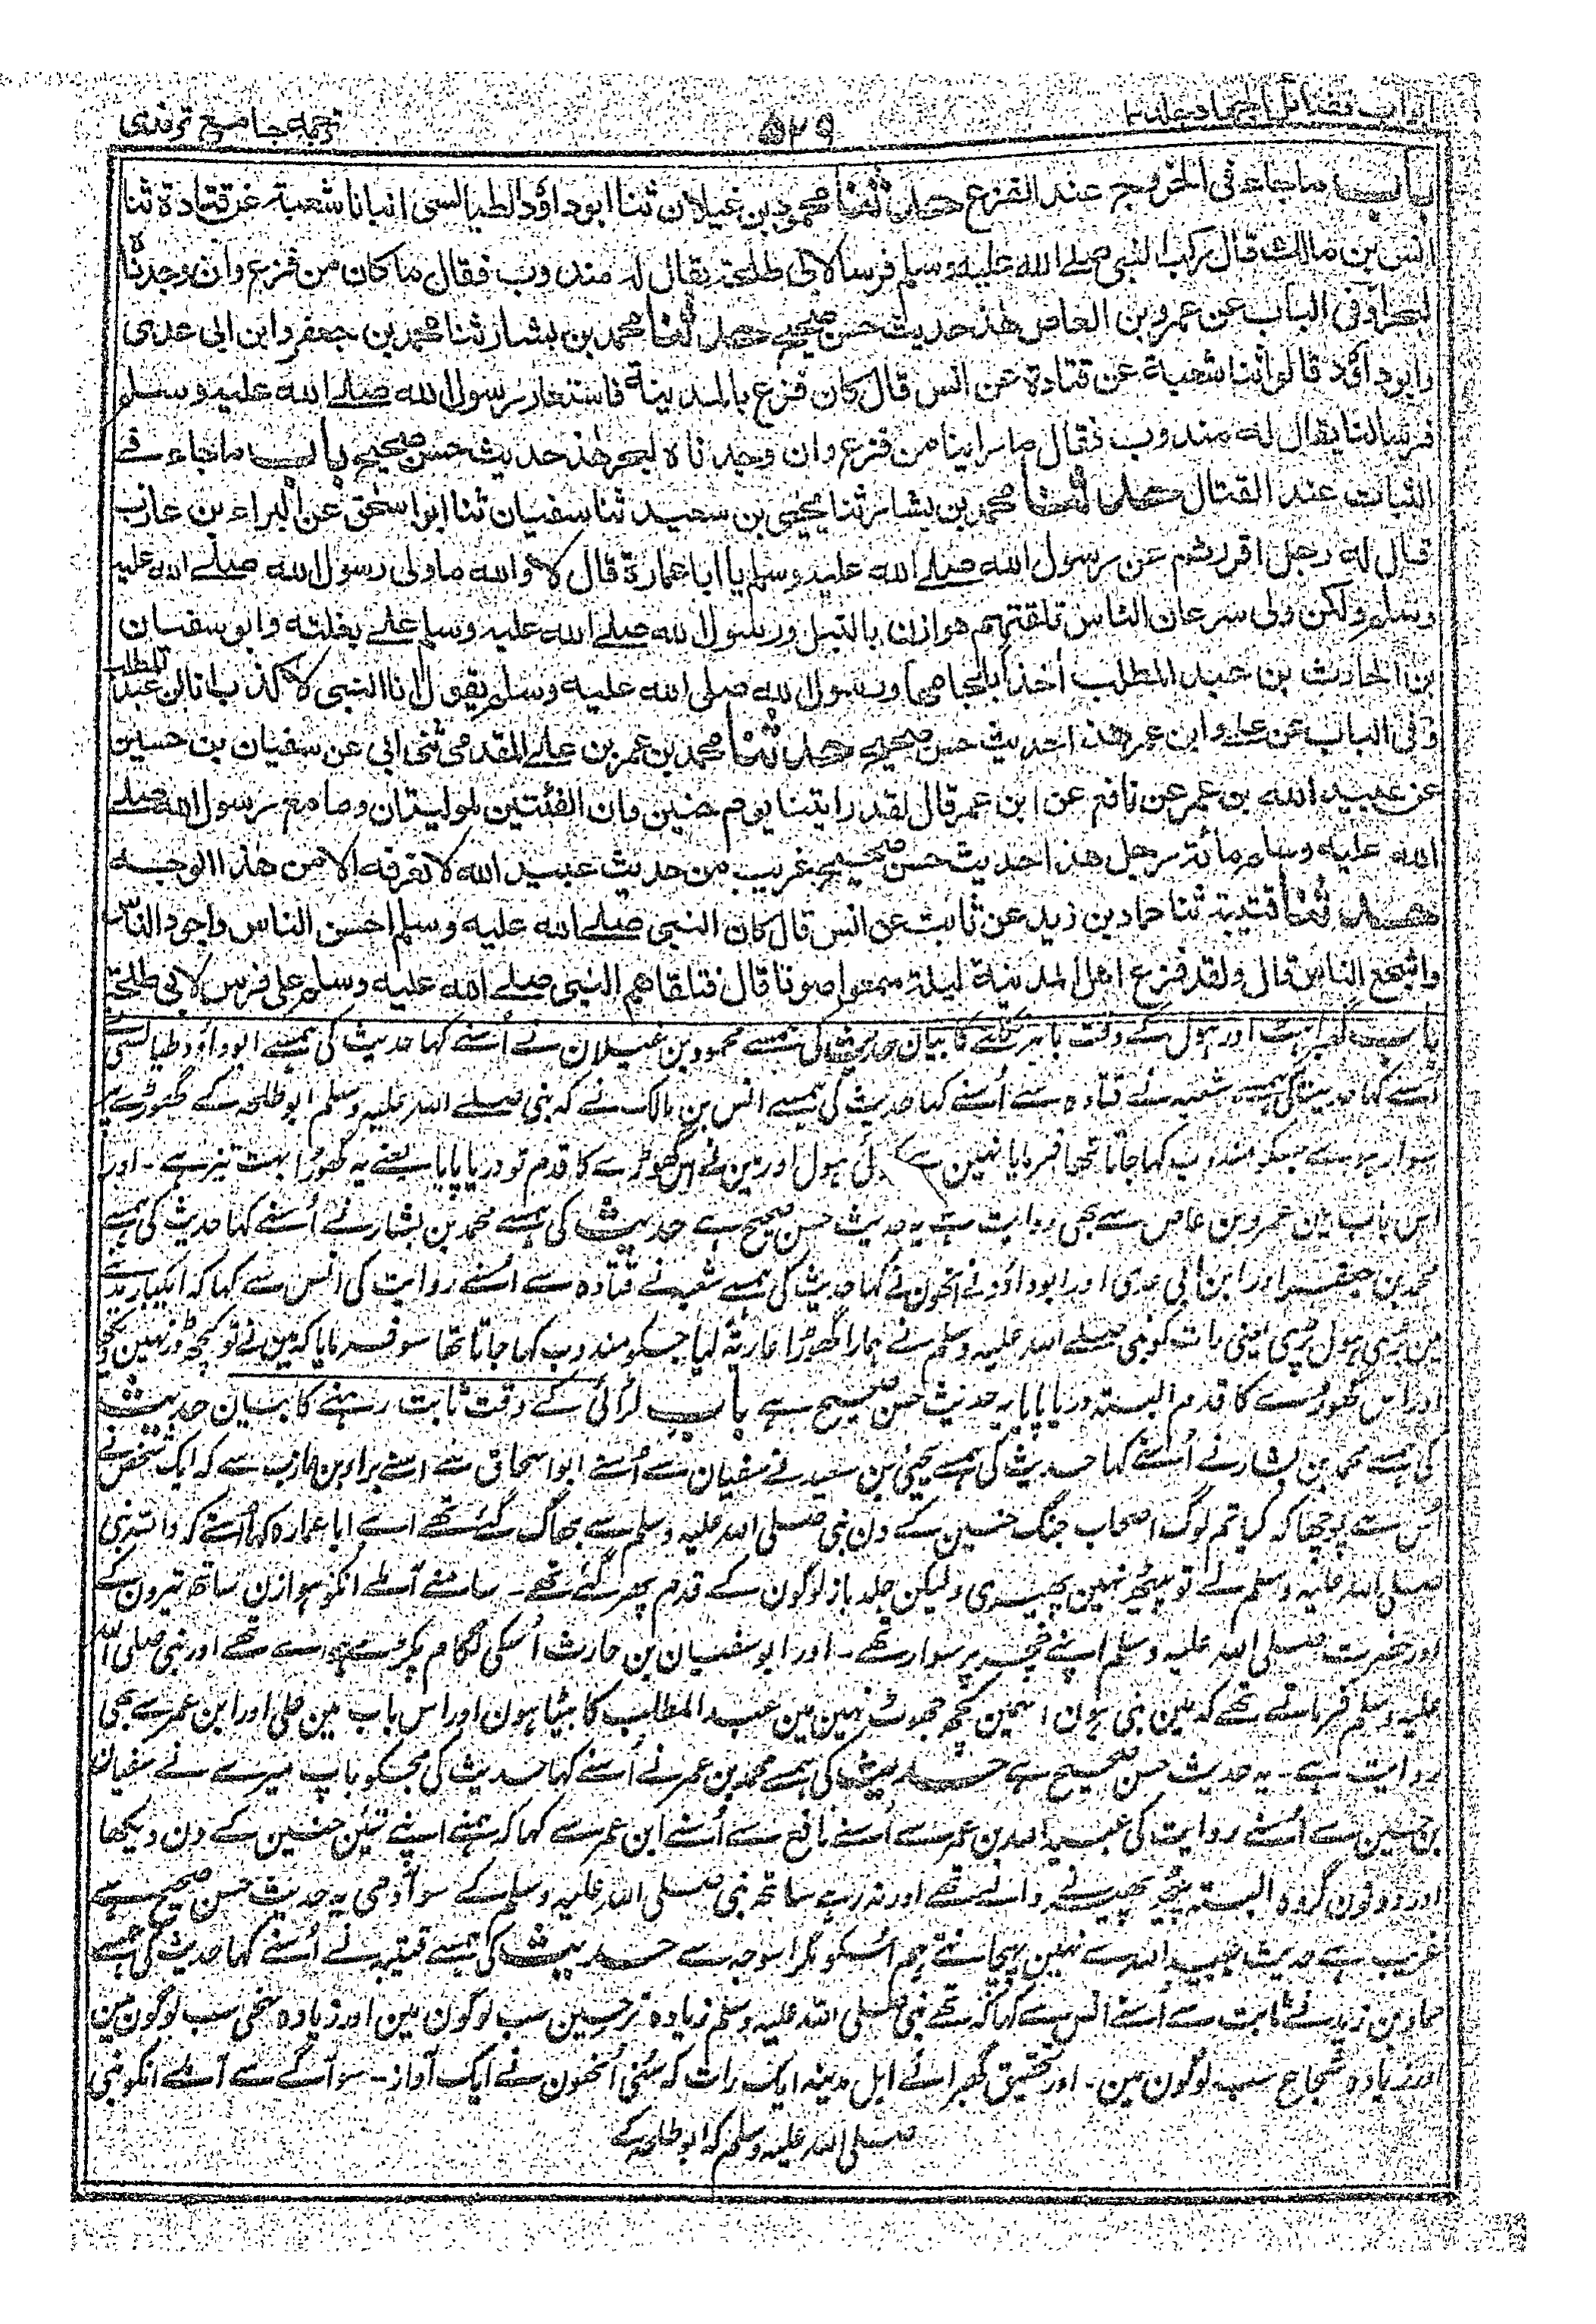 ابواب فضائل الجهاد جلد ۱
۵۲۹
ترجمہ جامع ترمذی
باب ماجاء فی الخروج عند الفزع حدثنا محمود بن غیلان ثنا ابوداؤد الطیالسی انبانا شعبة عن قتادة ثنا
انس بن مالك قال ركب النبی صلے الله علیه وسلم فرسا لابی طلحة یقال له مندوب فقال ما كان من فزع وان وجدناه
لبحرا وفی الباب عن عمرو بن العاص هذا حدیث حسن صحیح حدثنا محمد بن بشار ثنا محمد بن جعفر وابن ابی عدی
وابوداؤد قالوا ثنا شعبة عن قتادة عن انس قال كان فزع بالمدینة فاستعار رسول الله صلے الله علیه وسلم
فرسا لنا یقال له مندوب فقال ما راینا من فزع وان وجدناه لبحرا هذا حدیث حسن صحیح باب ماجاء فی
الثبات عند القتال حدثنا محمد بن بشار ثنا یحیی بن سعید ثنا سفیان ثنا ابو اسحٰق عن البراء بن عازب
قال له رجل افررتم عن رسول الله صلے الله علیه وسلم یا ابا عمارة قال لا والله ما ولی رسول الله صلے الله علیه
وسلم ولكن ولی سرعان الناس تلقتهم هوازن بالنبل ورسول الله صلے الله علیه وسلم علے بغلته وابو سفیان
بن الحارث بن عبد المطلب اخذ بلجامها ورسول الله صلی الله علیه وسلم یقول انا النبی لا كذب انا ابن عبد المطلب
وفی الباب عن علے وابن عمر هذا حدیث حسن صحیح حدثنا محمد بن عمر بن علے المقدمی ثنی ابی عن سفیان بن حسین
عن عبید الله بن عمر عن نافع عن ابن عمر قال لقد رایتنا یوم حنین وان الفئتین لمولیتان وما مع رسول الله صلے
الله علیه وسلم مائة رجل هذا حدیث حسن صحیح غریب من حدیث عبید الله لا نعرفه الا من هذا الوجه
حدثنا قتیبة ثنا حماد بن زید عن ثابت عن انس قال كان النبی صلے الله علیه وسلم احسن الناس واجود الناس
واشجع الناس قال ولقد فزع اهل المدینة لیلة سمعوا صوتا قال فتلقاهم النبی صلے الله علیه وسلم علی فرس لابی طلحة
باب گھبراہٹ اور ہول کے وقت باہر نکلنے کا بیان حدیث کی ہمسے محمود بن غیلان نے اُسنے کہا حدیث کی ہمسے ابوداؤد طیالسی
اُسنے کہا حدیث کی ہمسے شعبہ نے قتادہ سے اُسنے کہا حدیث کی ہمسے انس بن مالک نے کہ نبی صلے اللہ علیہ وسلم ابوطلحہ کے گھوڑے پر
سوار ہوے جسکو مندوب کہا جاتا تھا فرمایا نہین ہے کوئی ہول اور مین نے اس گھوڑے کا قدم تو دریا پایا یعنے یہ گھوڑا بہت تیز ہے۔ اور
اس باب مین عمرو بن عاص سے بھی روایت ہے یہ حدیث حسن صحیح ہے حدیث کی ہمسے محمد بن بشار نے اُسنے کہا حدیث کی ہمسے
محمد بن جعفر اور ابن ابی عدی اور ابوداؤد نے انھون نے کہا حدیث کی ہمسے شعبہ نے قتادہ سے اُسنے روایت کی انس سے کہا کہ ایکبار مدینے
مین بڑی ہول پڑی یعنی رات کو نبی صلے اللہ علیہ وسلم نے ہمارا گھوڑا عاریۃً لیا جسکو مندوب کہا جاتا تھا سو فرمایا کہ مین نے تو کچھ ڈر نہین دیکھا
اور اس گھوڑے کا قدم البتہ دریا پایا یہ حدیث حسن صحیح ہے باب لڑائی کے وقت ثابت رہنے کا بیان حدیث
کی ہمسے محمد بن بشار نے اُسنے کہا حدیث کی ہمسے یحیی بن سعید نے سفیان سے اُسنے ابواسحاق سے اسنے براء بن عازب سے کہ ایک شخص نے
اُس سے پوچھا کہ کیا تم لوگ اصحاب جنگ حنین کے دن نبی صلی اللہ علیہ وسلم سے بھاگ گئے تھے اے ابا عمارہ کہا اُسنے کہ واللہ نبی
صلی اللہ علیہ وسلم نے تو پیٹھ نہین پھیری ولیکن جلد باز لوگون کے قدم پھر گئے تھے۔ سامنے آملے انکو ہوازن ساتھ تیرون کے
اور حضرت صلی اللہ علیہ وسلم اپنے خچر پر سوار تھے۔ اور ابو سفیان بن حارث اُسکی لگام پکڑے ہوے تھے اور نبی صلی اللہ
علیہ وسلم فرماتے تھے کہ مین نبی ہون اسمین کچھ جھوٹ نہین مین عبد المطلب کا بیٹا ہون اور اس باب مین علی اور ابن عمر سے بھی
روایت ہے۔ یہ حدیث حسن صحیح ہے حدیث کی ہمسے محمد بن عمر نے اُسنے کہا حدیث کی مجکو باپ میرے نے سفیان
بن حسین سے اُسنے روایت کی عبید اللہ بن عمر سے اُسنے نافع سے اُسنے ابن عمر سے کہا کہ ہمنے اپنے تئین حنین کے دن دیکھا
اور دونون گروہ البتہ پیٹھ پھیرنے والے تھے اور نہ رہے ساتھ نبی صلی اللہ علیہ وسلم کے سو آدمی یہ حدیث حسن صحیح ہے
غریب ہے حدیث عبید اللہ سے نہین پہچانتے ہم اُسکو مگر اسوجہ سے حدیث کی ہمسے قتیبہ نے اُسنے کہا حدیث کی ہمسے
حماد بن زید نے ثابت سے اُسنے انس سے کہا کہ تھے نبی صلی اللہ علیہ وسلم زیادہ تر حسین سب لوگون مین اور زیادہ سخی سب لوگون مین
اور زیادہ شجاع سب لوگون مین۔ اور تحقیق گھبرائے اہل مدینہ ایک رات کہ سُنی اُنھون نے ایک آواز۔ سو آگے سے آملے انکو نبی
صلی اللہ علیہ وسلم کہ ابوطلحہ کے